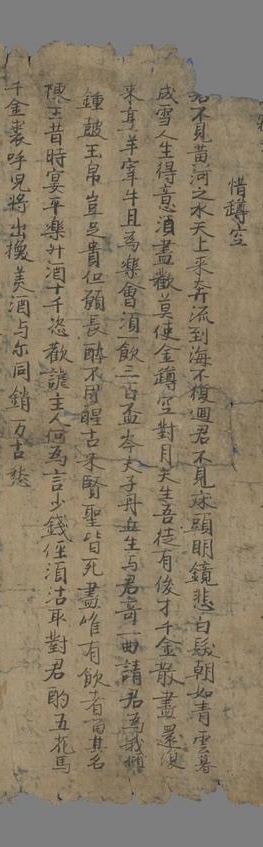 惜罇空
君不見黃河之水天上來奔流到海不復迴君不見床頭明鏡悲白髮朝如青雲暮
成雪人生得意須盡歡莫使金罇空對月天生吾徒有俊才千金散盡還復
來烹羊宰牛且為樂會須一飲三百盃岑夫子丹丘生与君哥一曲請君為我傾
鍾鼓玉帛豈足貴但願長醉不用醒古來賢聖皆死盡唯有飲者留其名
陳王昔時宴平樂斗酒十千恣歡謔主人何為言少錢徑須沽取對君酌五花馬
千金裘呼兒將出換美酒与尔同銷万古愁